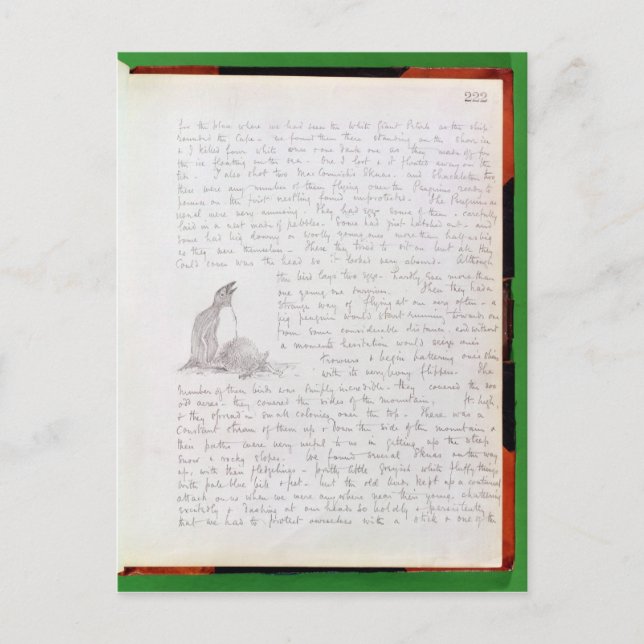 222
for the place where we had seen the White Giant Petrels as the ship
rounded the Cape - we found them there standing on the shore ice
& I killed four white ones & one dark one as they made off for
the ice floating on the sea. One I lost & it floated away on the
tide. I also shot two MacCormick's Skuas. and Shackleton two,
there were any number of them flying over the Penguins ready to
pounce on the first nestling found unprotected. The Penguins as
usual were very amusing. They had eggs some of them - carefully
laid in a nest made of pebbles. Some had just hatched out - and
some had big downy or woolly young ones more than half as big
as they were themselves - These they tried to sit on but all they
could cover was the head so it looked very absurd. Although
the bird lays two eggs - hardly ever more than
one young one survives. Then they had a
strange way of flying at one very often - a
pig penguin would start running towards one
from some considerable distance, and without
a moments hesitation would seize one's
trowsers & begin pattering one's shins
with its very bony flippers. The
number of these birds was simply incredible - they covered the
odd acres - they covered the sides of the mountain, ft. high,
& they spread in small colonies over the top. There was a
constant stream of them up & down the side of the mountain &
their paths were very useful to us in getting up the steep
snow & rocky slopes. We found several Skuas on the way
up, with their fledgelings - pretty little greyish white fluffy things
with pale blue bills & feet - but the old birds kept up a continual
attack on us when we were anywhere near their young, chattering
excitedly & dashing at our heads so boldly & persistently
that we had to protect ourselves with a stick & one of the